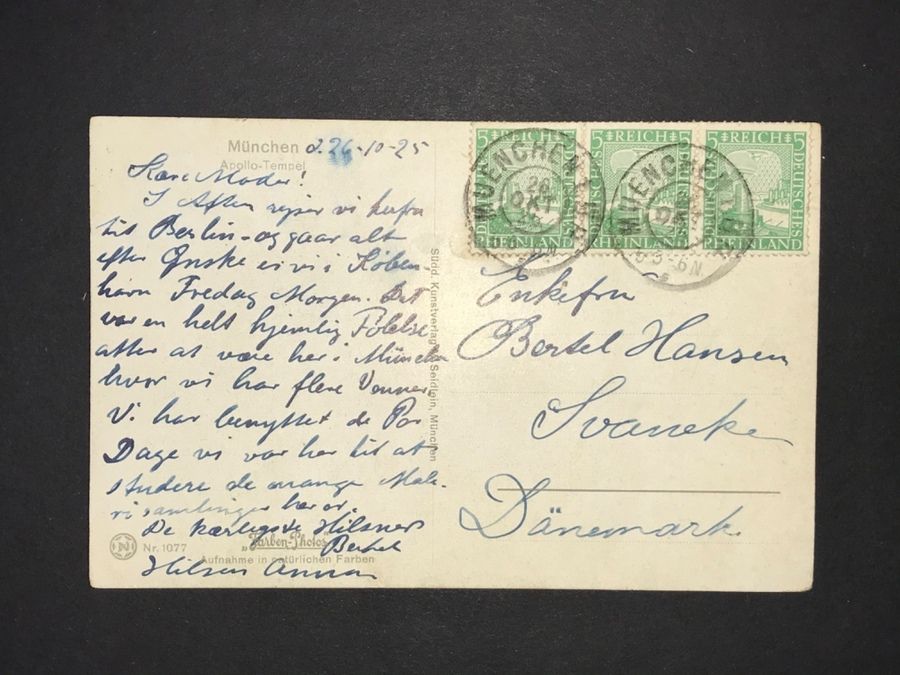 München d. 26-10-25
Apollo-Tempel
Kære Moder!
I Aften rejser vi herfra
til Berlin - og gaar alt
efter Ønske er vi i Køben-
havn Fredag Morgen. Det
var en helt hjemlig Følelse
atter at være her i München
hvor vi har flere Venner.
Vi har benyttet de Par
Dage vi var her til at
studere de mange Male-
risamlinger her er.
De kærligste Hilsner
Bertel
Hilsen Anna
Nr. 1077
„Farben-Photos"
Aufnahme in natürlichen Farben
Südd. Kunstverlag Seidlein, München
5 REICH 5
DEUTSCHES
RHEINLAND
5 REICH 5
DEUTSCHES
RHEINLAND
5 REICH 5
DEUTSCHES
RHEINLAND
MUENCHEN
26
OKT
MUENCHEN
OKT
5-6N
Enkefru
Bertel Hansen
Svaneke
Dänemark